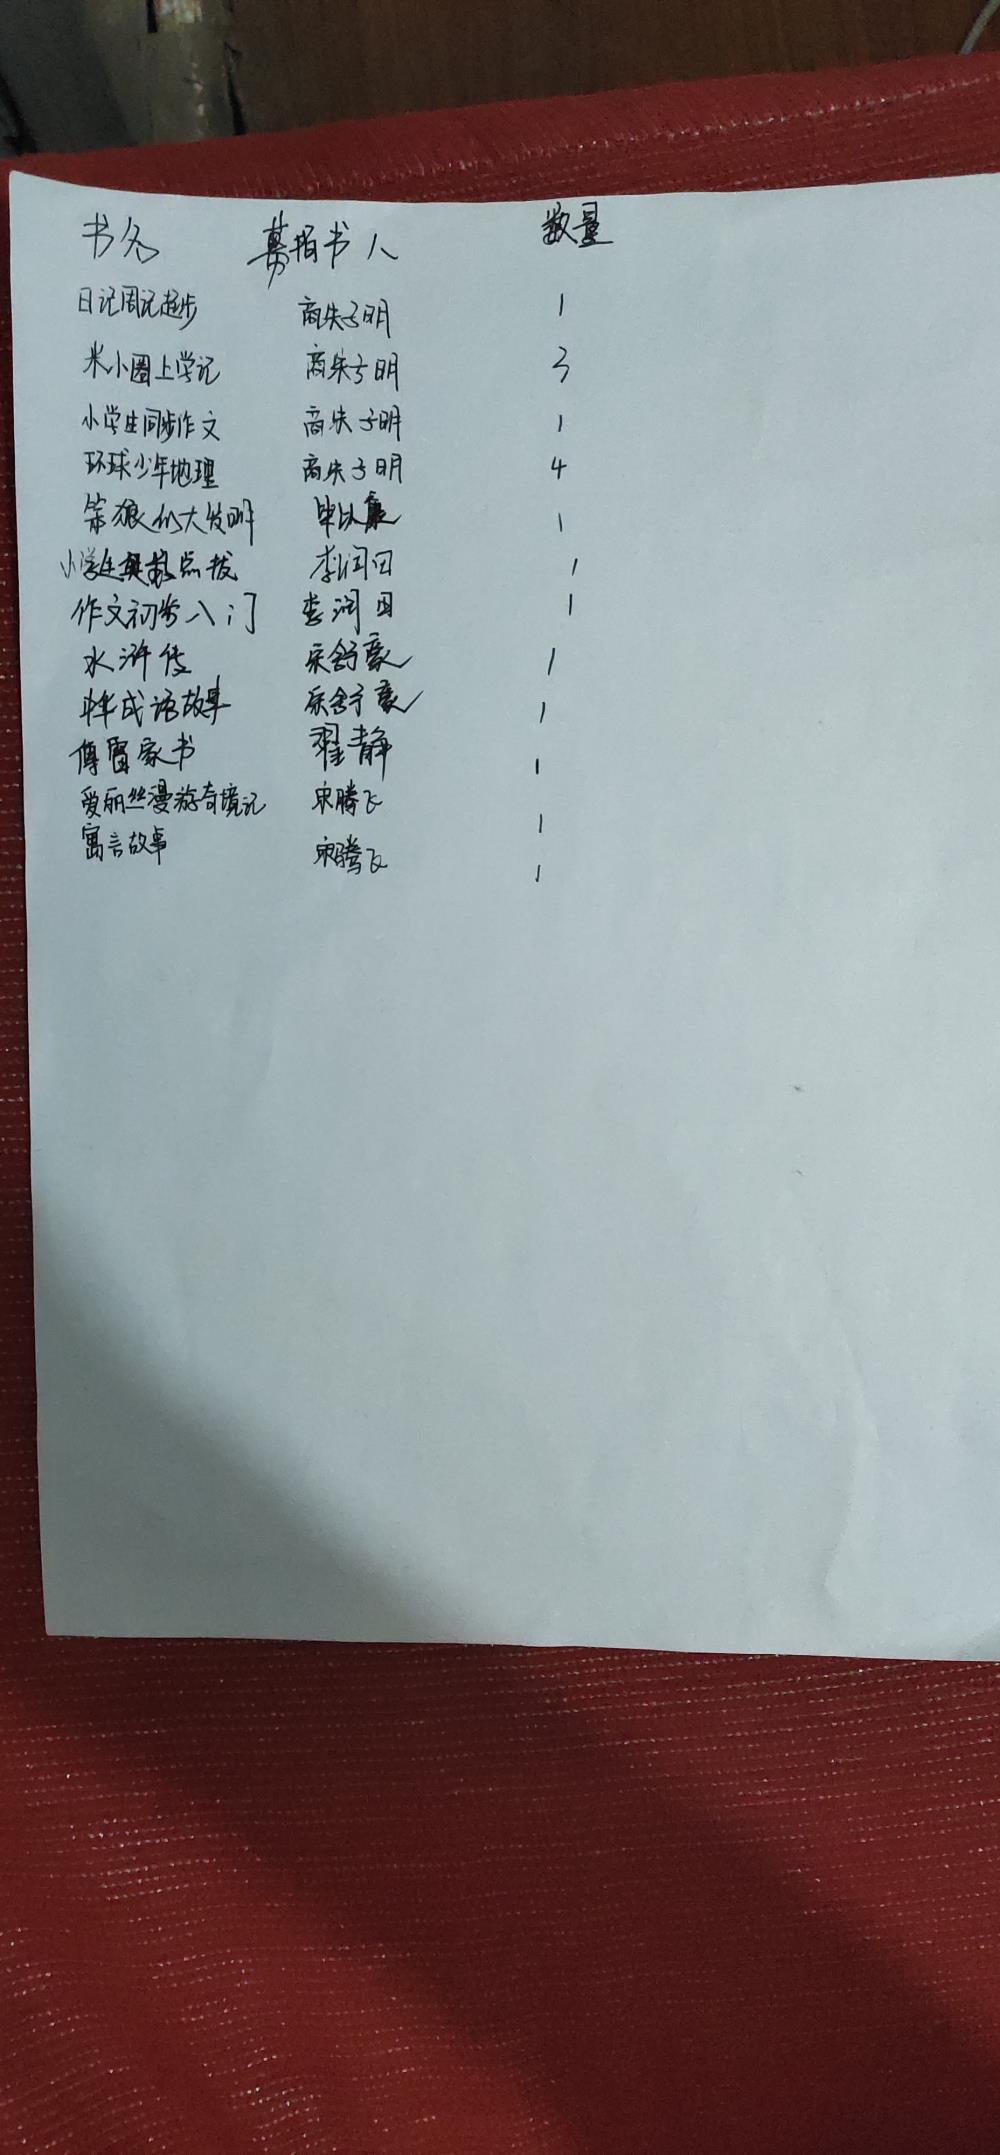 书名 募捐书人 数量
日记周记起步 商朱子明 1
米小圈上学记 商朱子明 3
小学生同步作文 商朱子明 1
环球少年地理 商朱子明 4
笨狼的大发明 毕以 1
小学生 点拔 李润田 1
作文初步入门 李润田 1
水浒传 乐舒豪 1
中华成语故事 乐舒豪 1
傅雷家书 翟静 1
爱丽丝漫游奇境记 宋腾飞 1
寓言故事 宋腾飞 1